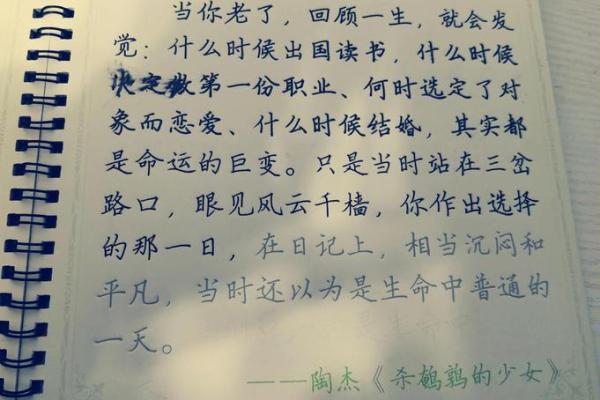 当你老了，回顾一生，就会发
觉：什么时候出国读书，什么时候
决定做第一份职业、何时选定了对
象而恋爱、什么时候结婚，其实都
是命运的巨变。只是当时站在三岔
路口，眼见风云千樯，你作出选择
的那一日，在日记上，相当沉闷和
平凡，当时还以为是生命中普通的
一天。
———陶杰《杀鹌鹑的少女》